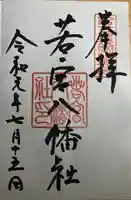 奉拝
若宮八幡社
令和元年七月十五日